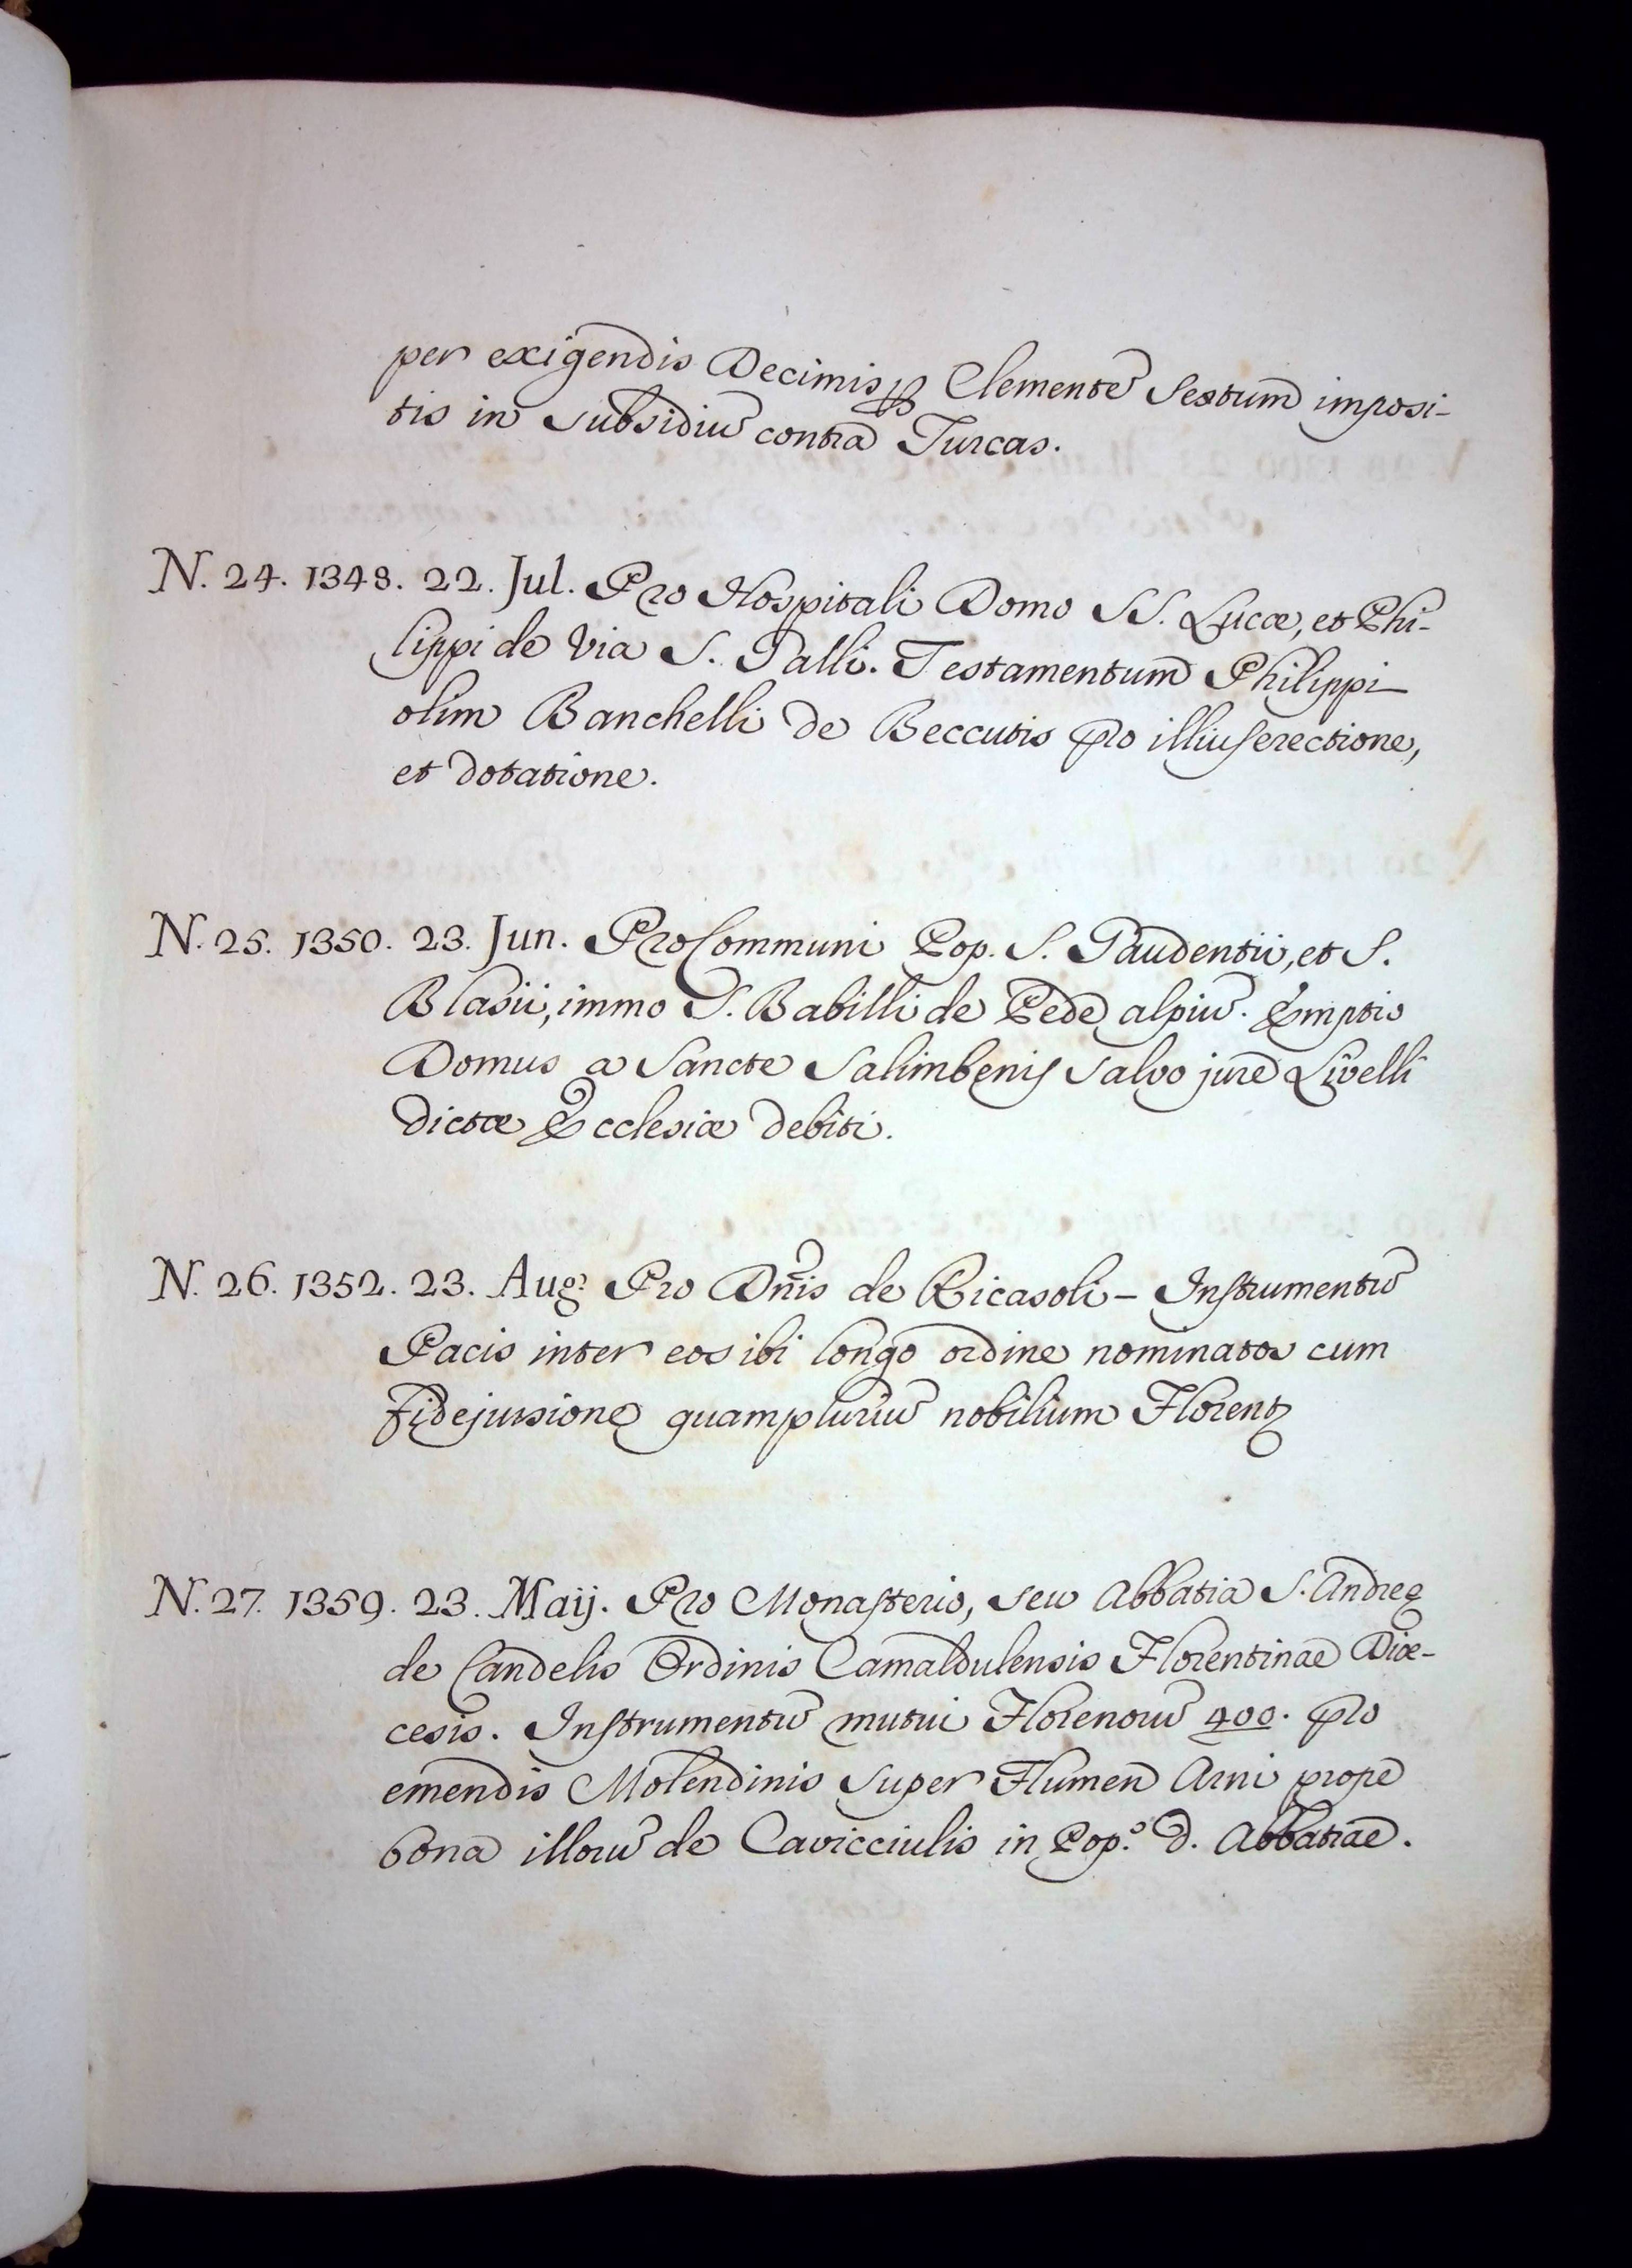 per exigendis Decimis ꝑ Clementē Sextum imposi-
tis in subsidiū contra Turcas.
N. 24. 1348. 22. Jul. Pro Hospitali Domo SS. Lucæ, et Phi-
lippi de Via S. Galli. Testamentum Philippi
olim Banchelli de Beccutis pro illius erectione,
et dotatione.
N. 25. 1350. 23. Jun. Pro Communi Pop. S. Gaudentii, et S.
Blasii, immo S. Babilli de Pede alpiū. Emptio
Domus a Sancte Salimbenis salvo jure Livelli
dictæ Ecclesiæ debiti.
N. 26. 1352. 23. Aug: Pro Dñis de Ricasoli - Instrumentū
Pacis inter eos ibi longo ordine nominatos cum
fidejussione quampluriū nobilium Florent
N. 27. 1359. 23. Maij. Pro Monasterio, seu Abbatia S. Andreę
de Candelis Ordinis Camaldulensis Florentinae Diœ-
cesis. Instrumentū mutui Florenorū 400. pro
emendis Molendinis super Flumen Arni prope
bona illorū de Cavicciulis in Pop.º d. Abbatiae.